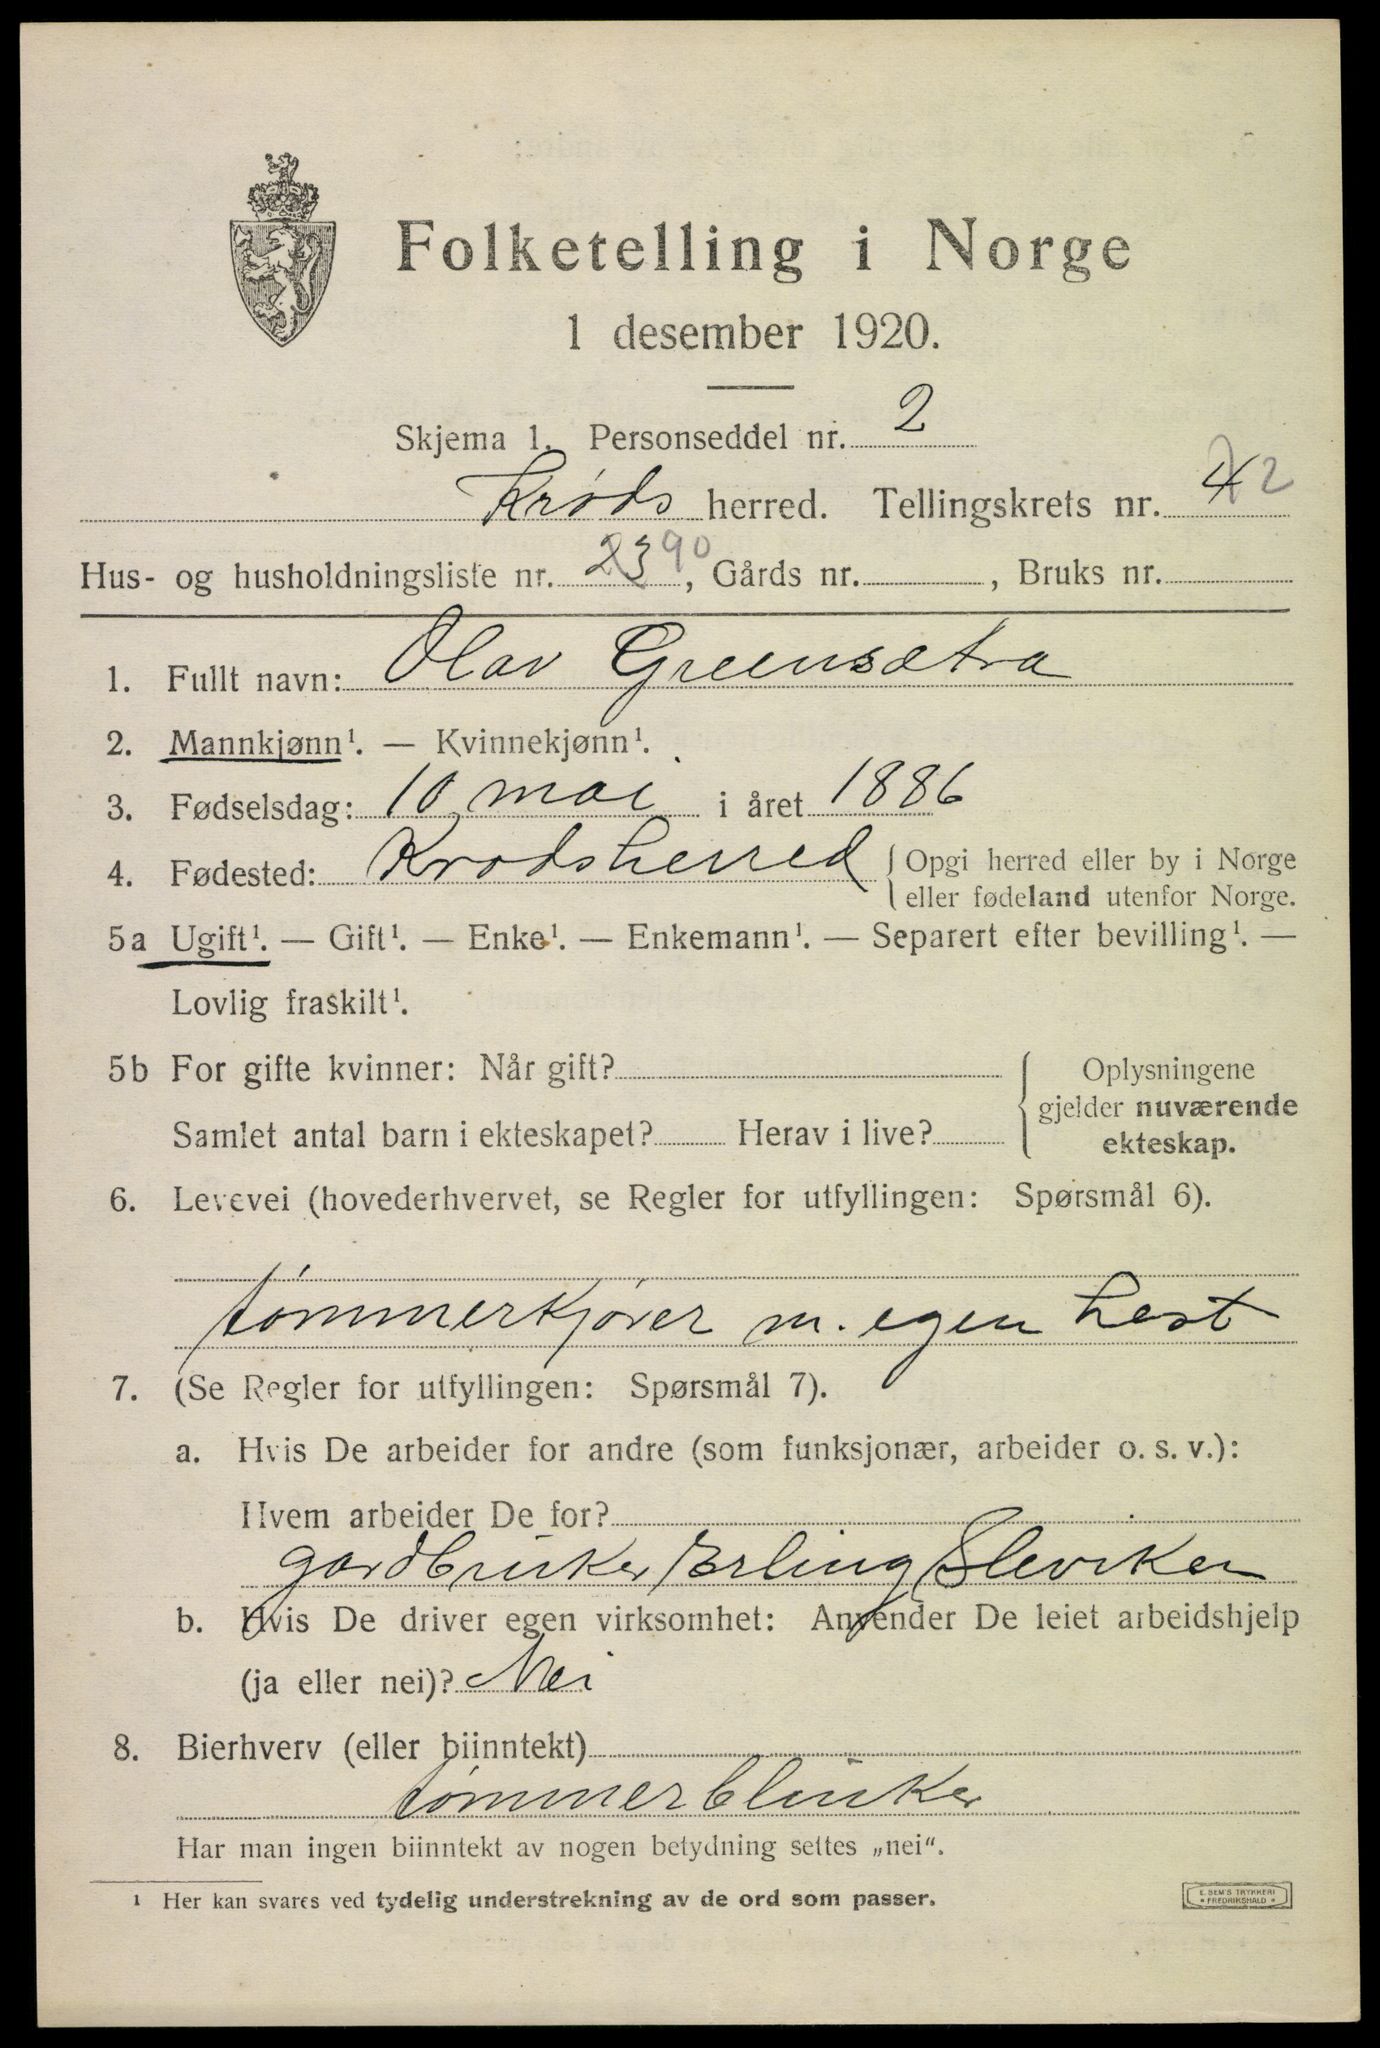 Folketelling i Norge
1 desember 1920.
Skjema 1. Personseddel nr. 2
Krøds herred. Tellingskrets nr. 4 2
Hus- og husholdningsliste nr. 23 90, Gårds nr. , Bruks nr.
1. Fullt navn: Olav Greensætra
2. Mannkjønn¹. — Kvinnekjønn¹.
3. Fødselsdag: 10 mai i året 1886
4. Fødested: Krødsherred { Opgi herred eller by i Norge
eller fødeland utenfor Norge.
5a Ugift¹. — Gift¹. — Enke¹. — Enkemann¹. — Separert efter bevilling¹. —
Lovlig fraskilt¹.
5b For gifte kvinner: Når gift? { Oplysningene
gjelder nuværende
Samlet antal barn i ekteskapet? Herav i live? ekteskap.
6. Levevei (hovederhvervet, se Regler for utfyllingen: Spørsmål 6).
tømmerkjører m. egen hest
7. (Se Regler for utfyllingen: Spørsmål 7).
a. Hvis De arbeider for andre (som funksjonær, arbeider o. s. v.):
Hvem arbeider De for?
gardbruker Erling Sleviken
b. Hvis De driver egen virksomhet: Anvender De leiet arbeidshjelp
(ja eller nei)? Nei
8. Bierhverv (eller biinntekt)
tømmerblinker
Har man ingen biinntekt av nogen betydning settes „nei“.
¹ Her kan svares ved tydelig understrekning av de ord som passer.
E. SEM'S TRYKKERI
* FREDRIKSHALD *